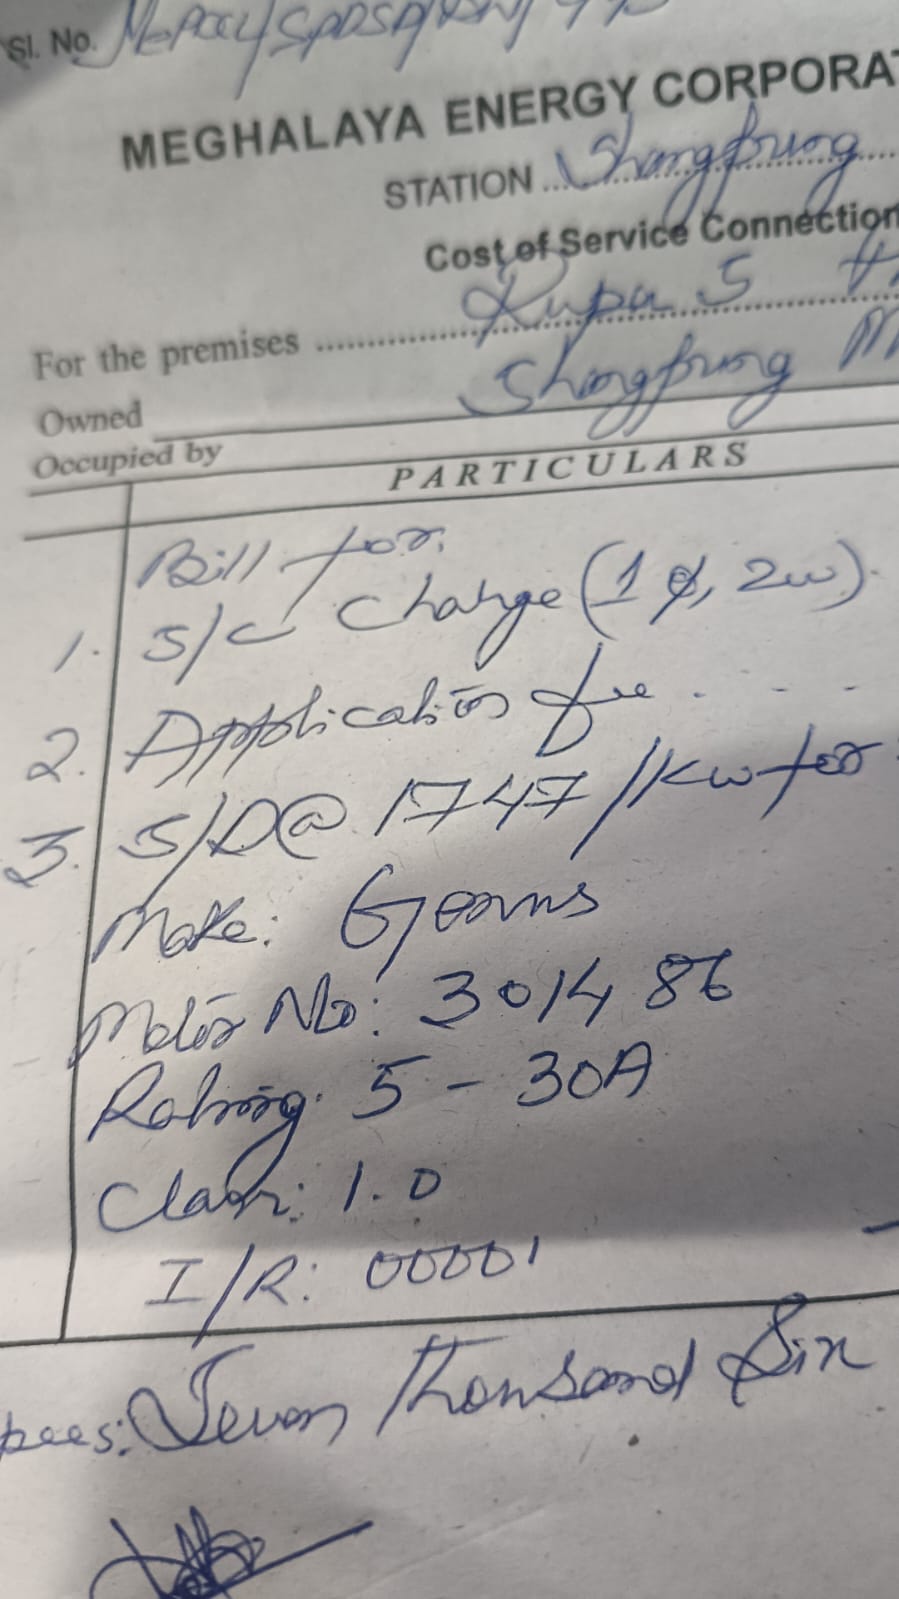 Sl. No.
MEGHALAYA ENERGY CORPORAT
STATION Shangpung
Cost of Service Connection
For the premises Rupa S
Shangpung M
Owned
Occupied by
PARTICULARS
Bill for.
1. S/C Charge (1 φ, 2w).
2. Application fee . . . .
3. S/D@ 1747/Kw for
Make: Genus
Meter No: 301486
Rating: 5 - 30A
Class: 1.0
I/R: 00001
pees: Seven Thousand Six